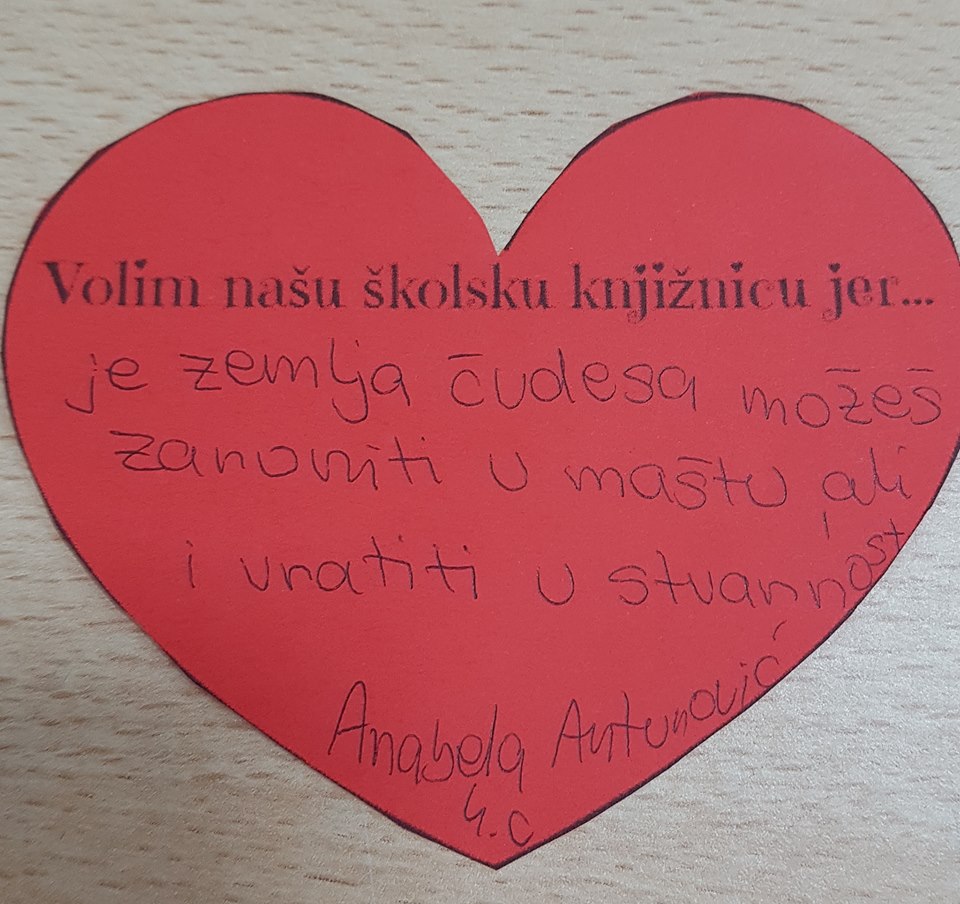 Volim našu školsku knjižnicu jer...
je zemlja čudesa možeš
zaroniti u maštu ali
i vratiti u stvarnost
Anabela Antunović
4.c